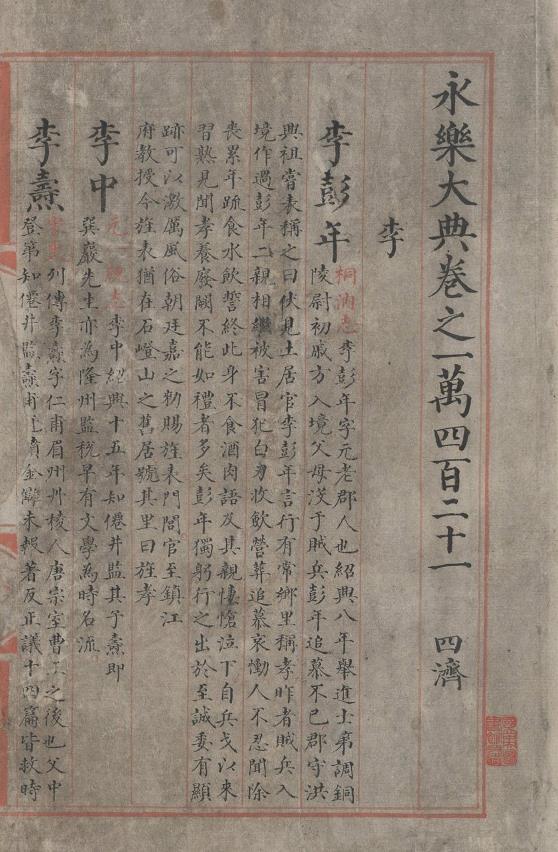 永樂大典卷之一萬四百二十一 四濟
李
李彭年
桐汭志李彭年字元老郡人也紹興八年舉進士第調銅
陵尉初戚方入境父母没于賊兵彭年追慕不已郡守洪
興祖嘗表稱之曰伏見土居官李彭年言行有常鄉里稱孝昨者賊兵入
境作過彭年二親相繼被害冒犯白刃收歛營葬追慕哀慟人不忍聞除
喪累年疏食水飲誓終此身不食酒肉語及其親悽愴泣下自兵戈以來
習熟見聞孝養廢闕不能如禮者多矣彭年獨躬行之出於至誠委有顯
跡可以激厲風俗朝廷嘉之勑賜旌表門閭官至鎮江
府教授今旌表猶在石嶝山之舊居號其里曰旌孝
李中
元一統志李中紹興十五年知僊井監其子燾即
巽巖先生亦為隆州監稅早有文學為時名流
李燾
宋史列傳李燾字仁甫眉州丹稜人唐宗室曹王之後也父中
登第知僊井監燾甫冠憤金讎未報著反正議十四篇皆救時